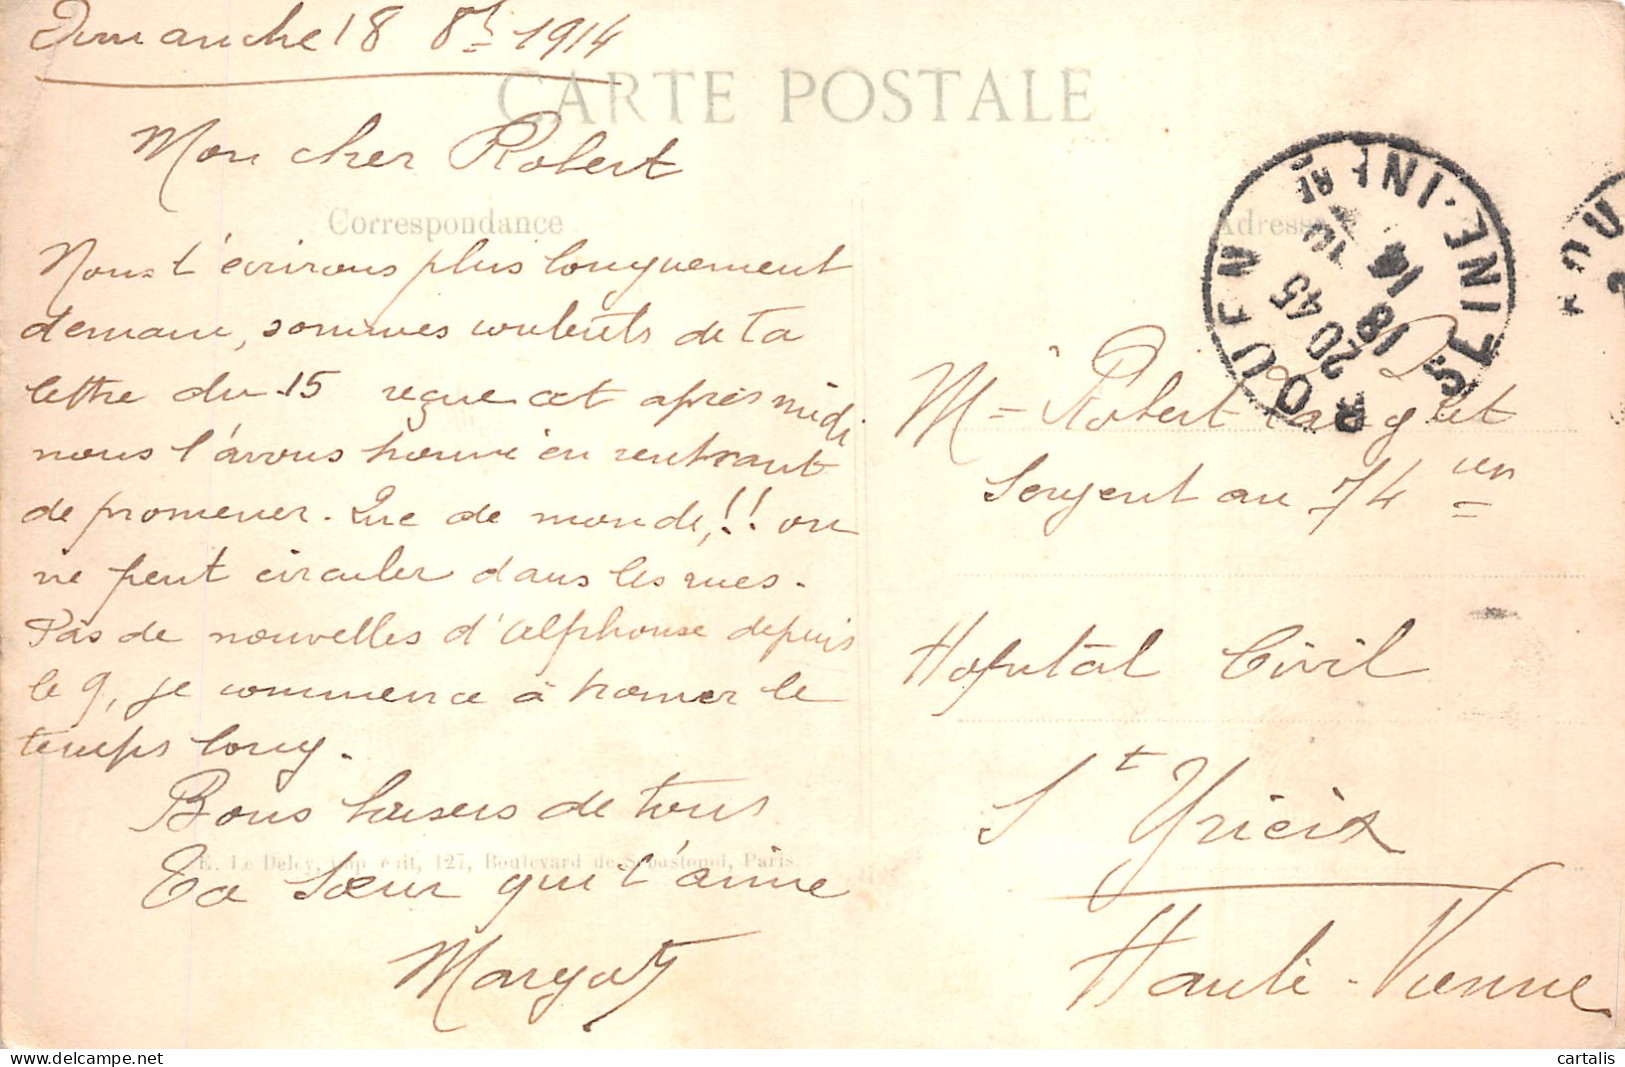 Dimanche 18 8bre 1914
CARTE POSTALE
Mon cher Robert
Correspondance
Nous t'écrirons plus longuement
demain, sommes contents de ta
lettre du 15 reçue cet après midi
nous l'avons trouvé en rentrant
de promener. Que de monde,!! on
ne peut circuler dans les rues.
Pas de nouvelles d'Alphonse depuis
le 9, je commence à trouver le
temps long.
Bons baisers de tous
E. Le Deley, imp. edit, 127, Boulevard de Sébastopol, Paris
Ta Sœur qui t'aime
Margot
Adresse
ROUEN ST SEINE-INFRE
20 45
18 10
14
Mr Robert
Sergent au 74 ien
Hopital Civil
St Yrieix
Haute-Vienne
cartalis